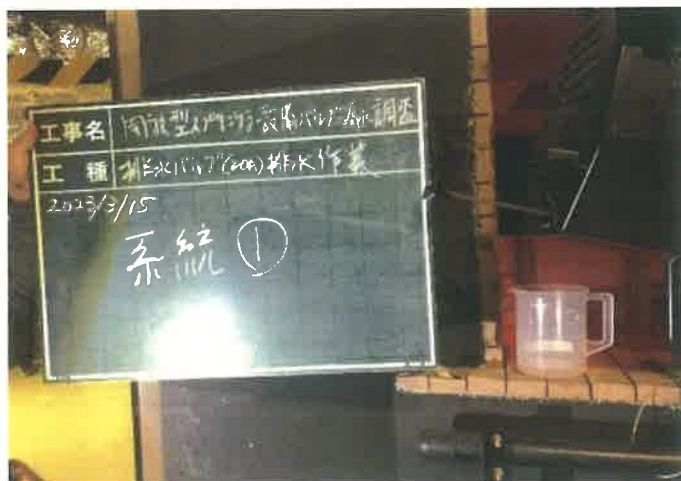 工事名 開放型スプリンクラー設備バルブ漏水調査
工種 排水バルブ(20A)排水作業
2023/3/15
系統 ①